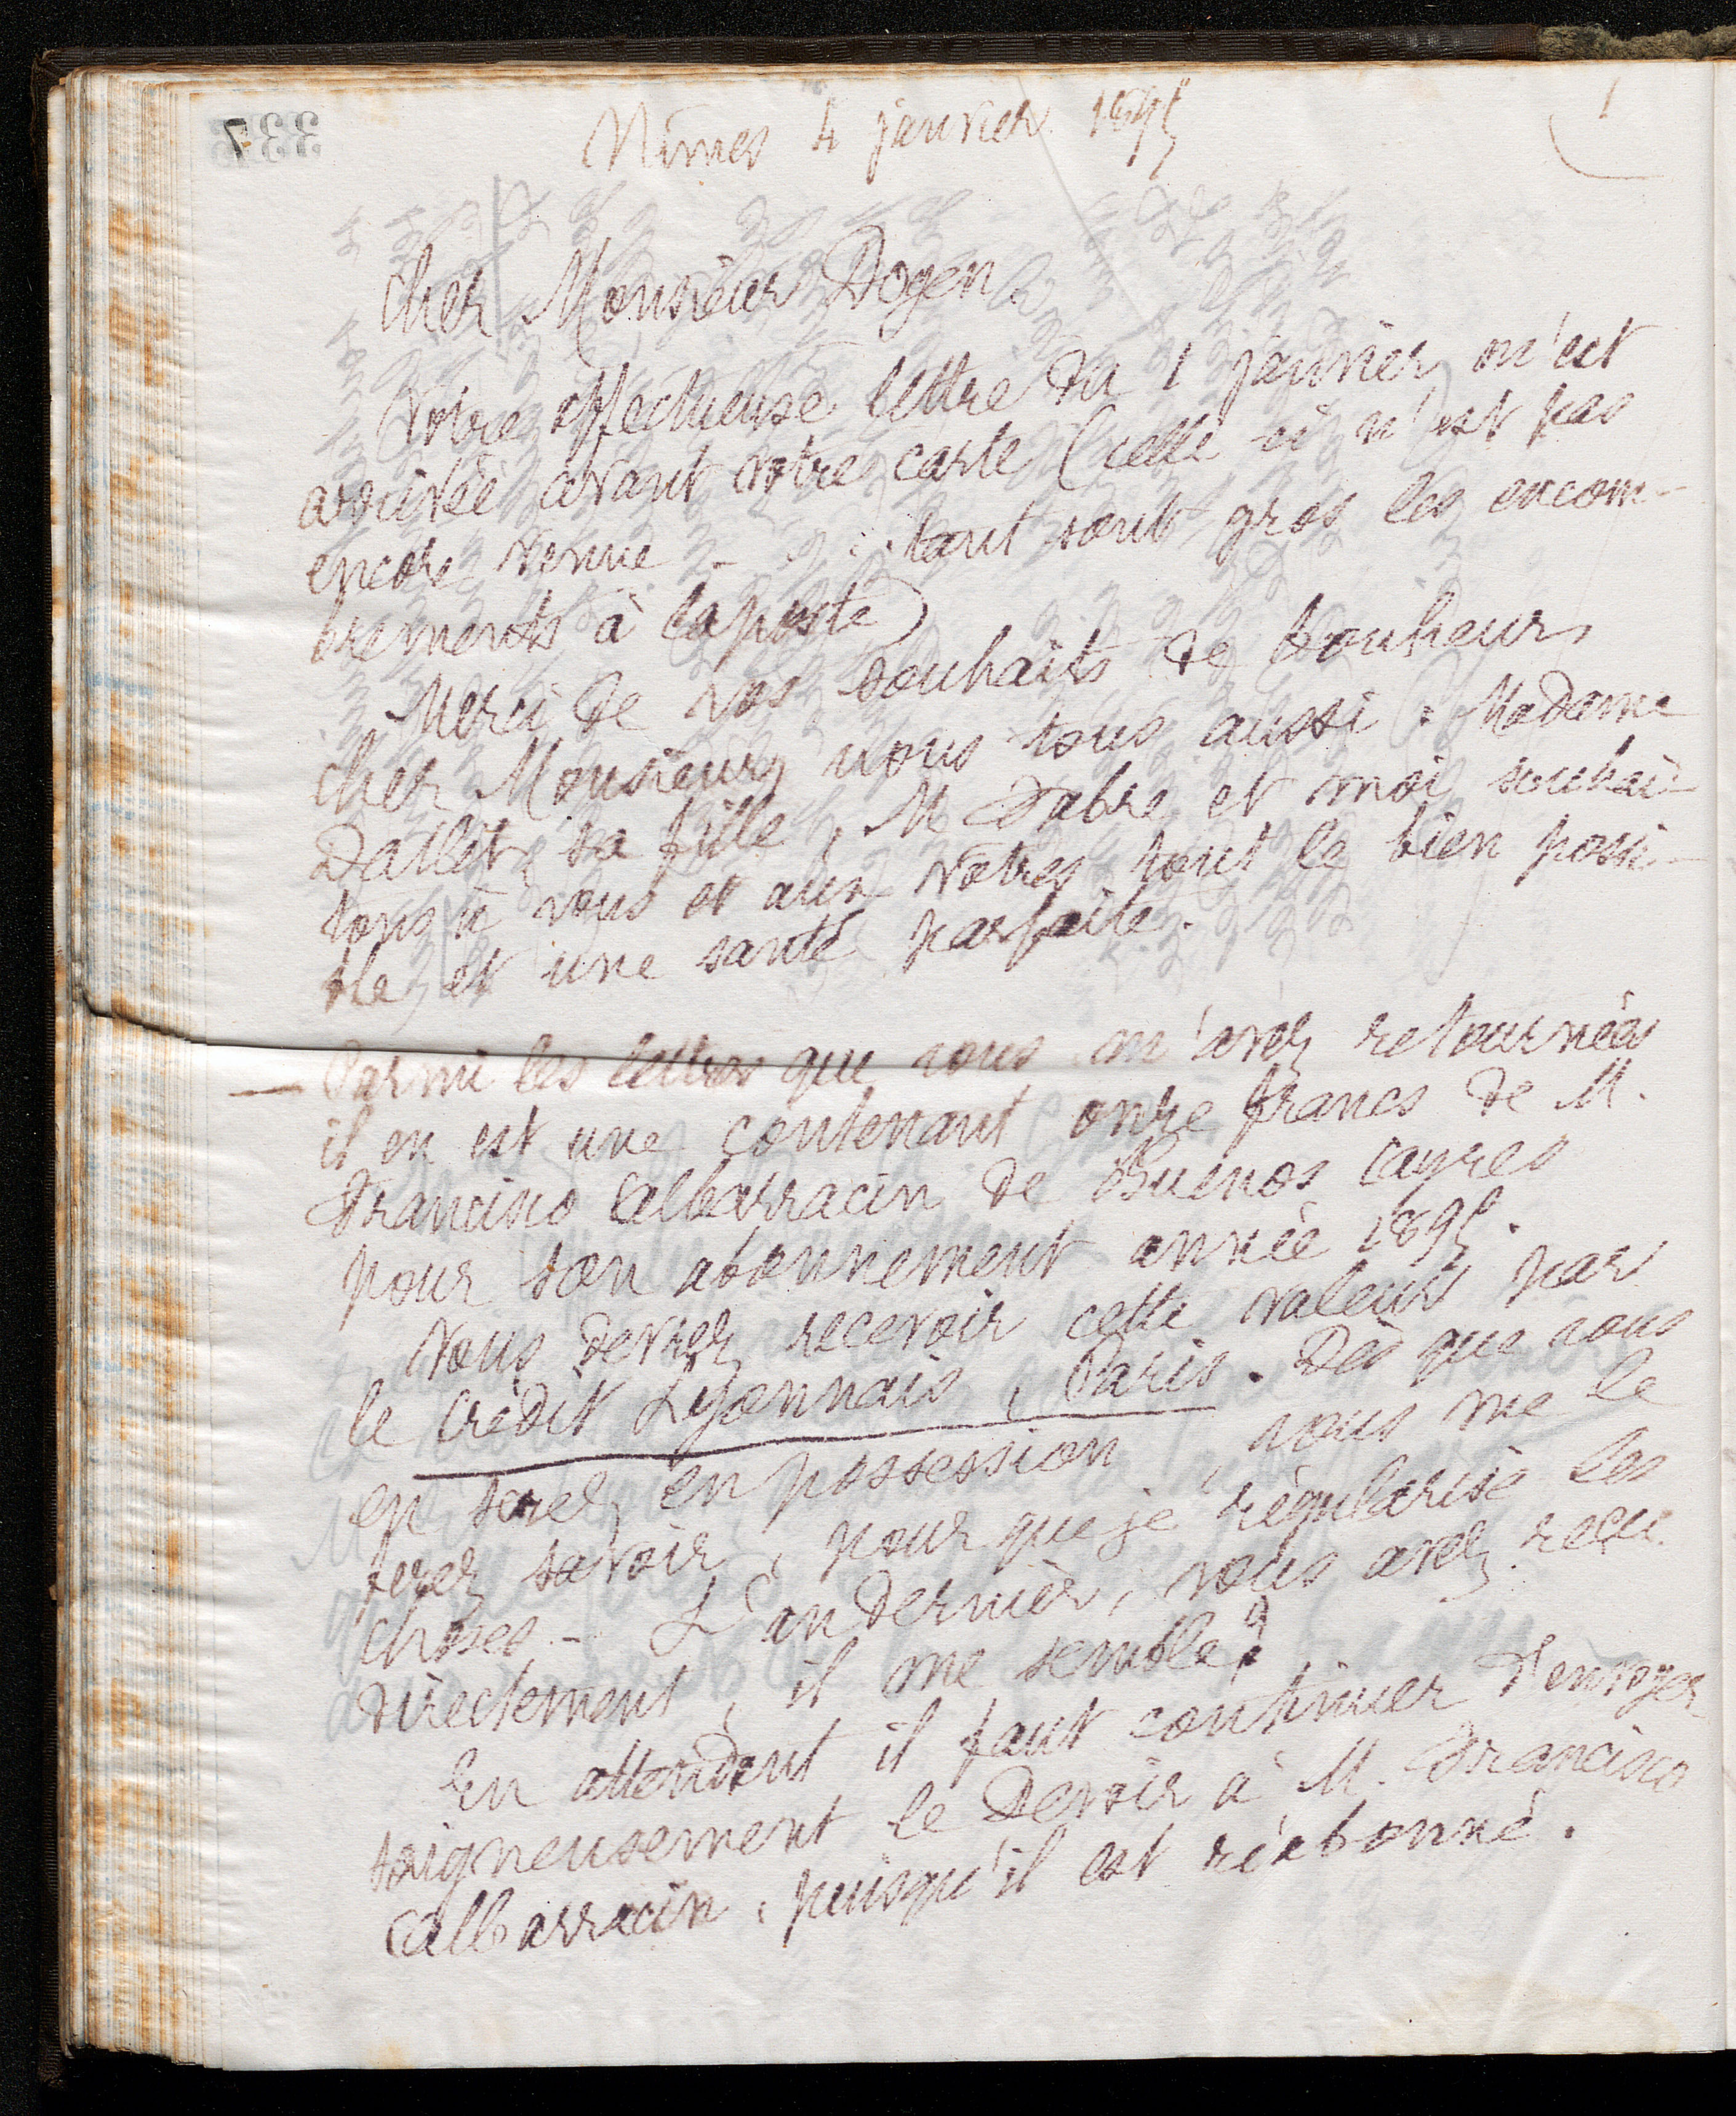 Nîmes 4 janvier 1895
1
Cher Monsieur Doyen
Votre affectueuse lettre du 1 janvier m'est
arrivée avant votre carte (celle ci n'est pas
encore venue - tant sont gros les encom-
brements à la poste)
Merci de vos souhaits de bonheur,
cher Monsieur, nous tous aussi : Madame
Dallet, sa fille, M Fabre et moi souhai-
tons à vous et aux vôtres tout le bien possi-
ble, et une santé parfaite.
— Parmi les lettres que vous m'avez retournées
il en est une contenant onze francs de M.
Francisco Albarracin de Buenos Ayres
pour son abonnement année 1895.
Vous devrez recevoir cette valeur par
le Crédit Lyonnais, Paris. Dès que vous
en serez en possession, vous me le
ferez savoir, pour que je régularise les
choses - L'an dernier, vous avez reçu
directement, il me semble?
En attendant il faut continuer d'envoyer
soigneusement le Devoir à M. Francisco
Albarracin, puisqu'il est réabonné.